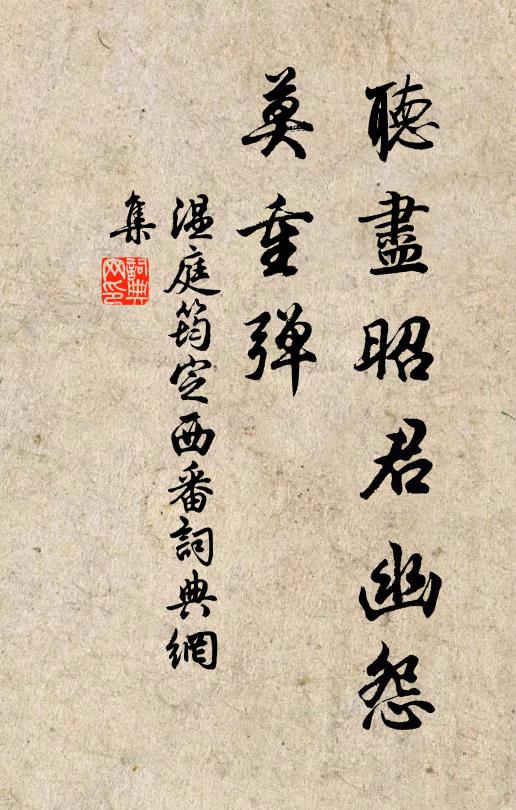 聽盡昭君幽怨
莫重弹
温庭筠定西番詞典網
集
詞典
网印